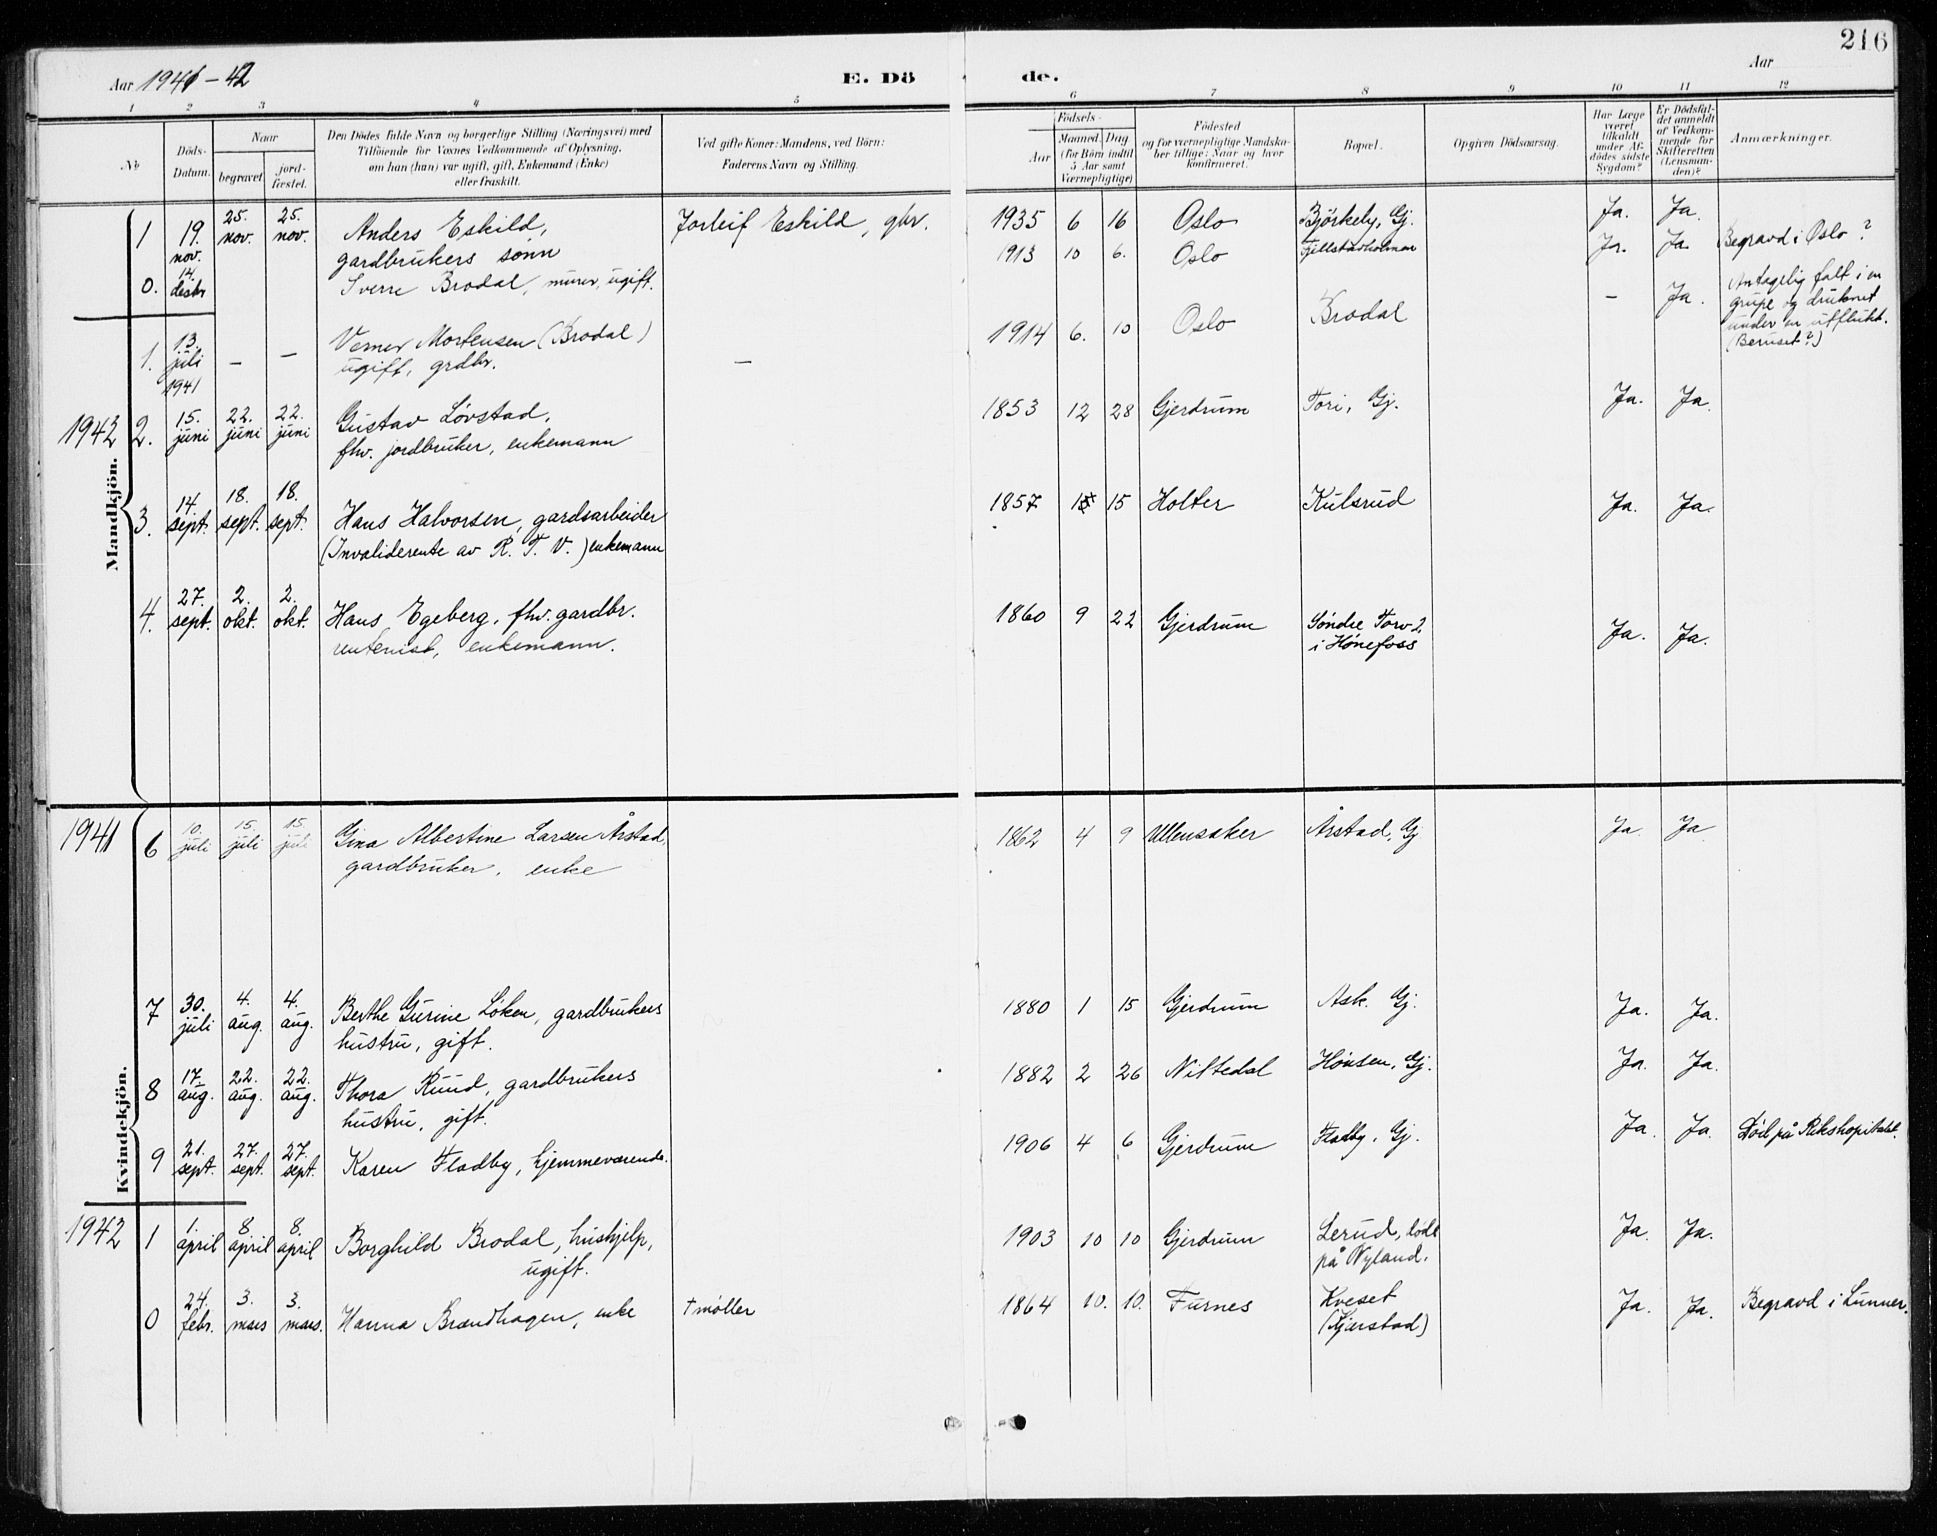 216
Aar 1941 - 42
E. Dö de.
Aar
1 2 3 4 5 6 7 8 9 10 11 12
No
Döds-Datum.
Naar
begravet
jord-fæstet.
Den Dödes fulde Navn og borgerlige Stilling (Næringsvei) med
Tilföiende for Voxnes Vedkommende af Oplysning,
om han (hun) var ugift, gift, Enkemand (Enke)
eller fraskilt.
Ved gifte Koner: Mandens, ved Börn:
Faderens Navn og Stilling.
Födsels-
Aar
Maaned. Dag
(for Börn indtil
5 Aar samt
Værnepligtige)
Födested
og for værnepligtige Mandska-
ber tillige: Naar og hvor
konfirmeret.
Bopæl.
Opgiven Dödsaarsag.
Har Læge
været
tilkaldt
under Af-
dödes sidste
Sygdom?
Er Dödsfal-
det anmeldt
af Vedkom-
mende for
Skifteretten
(Lensman-
den)?
Anmærkninger.
Mandkjön.
1 19. nov. 25. nov. 25. nov. Anders Eskild, Jorleif Eskild, gbr. 1935 6 16 Oslo Björkeby, Gj. Ja. Ja.
gardbrukers sønn
0. 14. desbr Sverre Brodal, murer, ugift. 1913 10 6. Oslo Ja. Ja. Begravd i Oslo?
1. 13. juli 1941 - - Verner Mortensen (Brodal) - 1914 6. 10 Oslo Brodal - Ja. Antagelig falt i en
ugift, grdbr. grupe og druknet
under en utflukt.
(Beruset?)
1942 2. 15. juni 22. juni 22. juni Gustav Lövstad, 1853 12 28 Gjerdrum Tori, Gj. Ja. Ja.
fhv. jordbruker, enkemann
3. 14. sept. 18. sept. 18. sept. Hans Halvorsen, gardsarbeider 1857 15 Holter Kulsrud Ja. Ja.
(Invaliderente av R. T. V.) enkemann
4. 27. sept. 2. okt. 2. okt. Hans Egeberg, fhv. gardbr. 1860 9 22 Gjerdrum Söndre Torv 2
rentenist, enkemann. i Hönefoss Ja. Ja.
Kvindekjön.
1941 6 10. juli 15. juli 15. juli Gina Albertine Larsen Årstad, 1862 4 9 Ullensaker Årstad, Gj Ja. Ja
gardbruker, enke
7 30. juli 4. aug. 4. aug. Berthe Gurine Löken, gardbrukers 1880 1 15 Gjerdrum Ask. Gj. Ja. Ja.
hustru, gift.
8 17. aug. 22. aug. 22. aug. Thora Ruud, gardbrukers 1882 2 26 Nittedal Hönsen, Gj. Ja. Ja.
hustru, gift.
9 21. sept. 27. sept. 27. sept. Karen Fladby, hjemmeværende. 1906 4 6 Gjerdrum Fladby, Gj. Ja. Ja. Död på Rikshopitalet.
1942 1 1. april 8. april 8. april Borghild Brodal, hushjelp, 1903 10 10 Gjerdrum Lerud, död Ja. Ja.
ugift. på Nyland.
0 24. febr. 3. mars 3. mars. Hanna Brændhagen, enke † møller 1864 10. 10. Furnes Kveset Ja. Ja. Begravd i Lunner.
(Kjærstad)